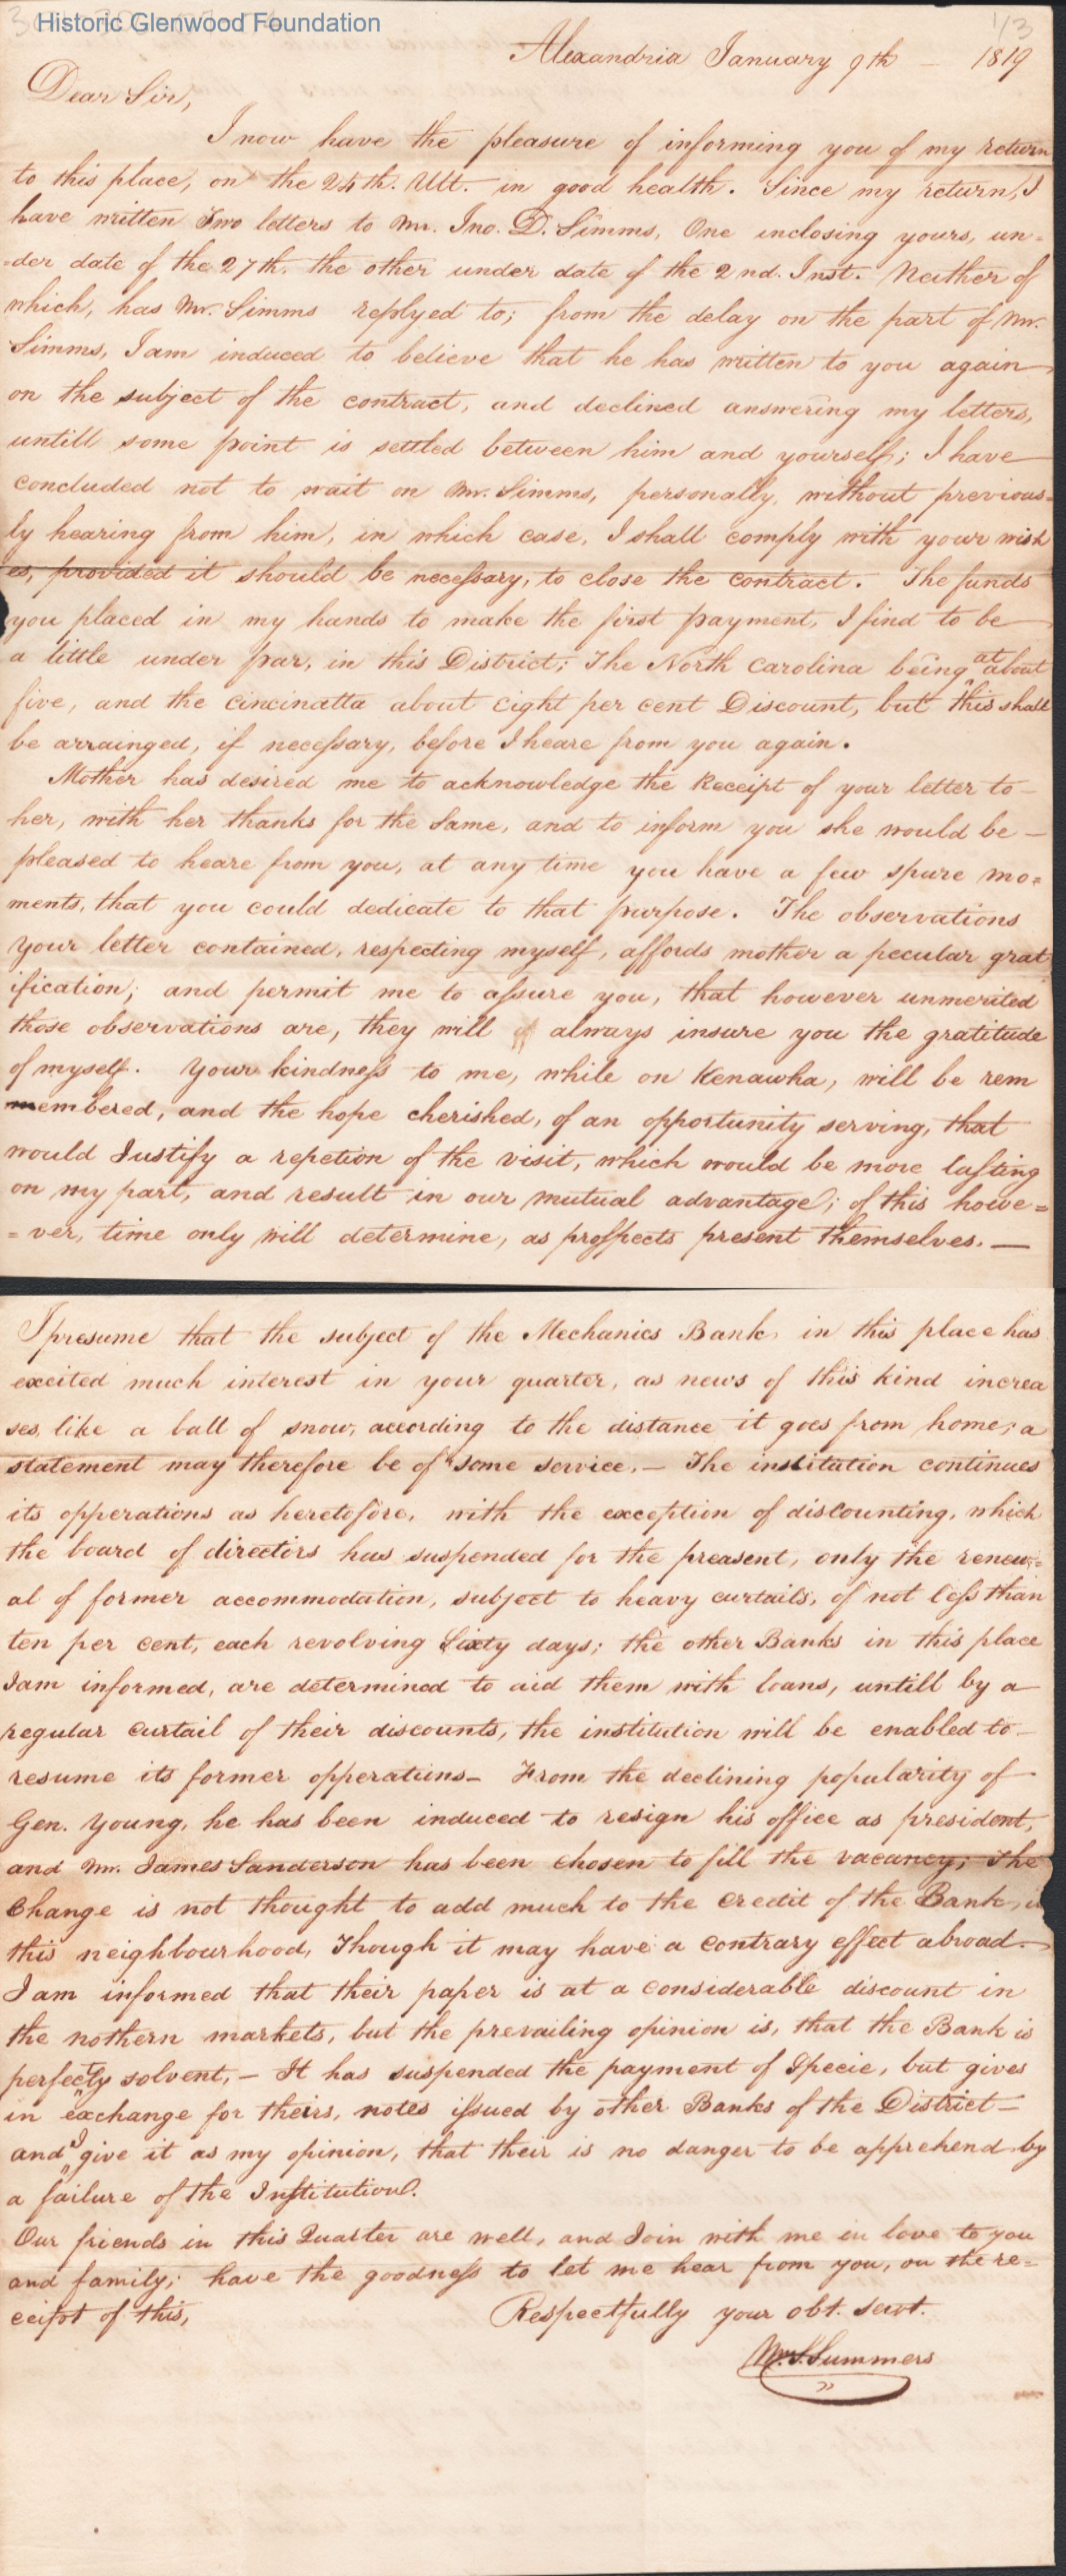 Historic Glenwood Foundation
1/3
Alexandria January 9th - 1819
Dear Sir,
I now have the pleasure of informing you of my return
to this place, on the 24th. Ult. in good health. Since my return, I
have written Two letters to Mr. Jno. D. Simms, One inclosing yours, un=
=der date of the 27th. the other under date of the 2nd. Inst. Neither of
which, has Mr. Simms replyed to; from the delay on the part of Mr.
Simms, I am induced to believe that he has written to you again
on the subject of the contract, and declined answering my letters,
untill some point is settled between him and yourself; I have
concluded not to wait on Mr. Simms, personally, without previous=
ly hearing from him, in which case, I shall comply with your wish
es, provided it should be necessary, to close the contract. The funds
you placed in my hands to make the first payment, I find to be
a little under par, in this District; The North Carolina being at about
five, and the Cincinatta about Eight per cent Discount, but this shall
be arrainged, if necessary, before I heare from you again.
Mother has desired me to acknowledge the Receipt of your letter to-
her, with her thanks for the Same, and to inform you she would be-
pleased to heare from you, at any time you have a few spare mo=
ments, that you could dedicate to that purpose. The observations
your letter contained, respecting myself, affords mother a pecular grat
ification; and permit me to assure you, that however unmerited
those observations are, they will always insure you the gratitude
of myself. Your kindness to me, while on Kenawha, will be rem
membered, and the hope cherished, of an opportunity serving, that
would Justify a repetion of the visit, which would be more lasting
on my part, and result in our mutual advantage; of this howe=
=ver, time only will determine, as prospects present themselves. -
I presume that the subject of the Mechanics Bank, in this place has
excited much interest in your quarter, as news of this kind increa
ses, like a ball of snow, according to the distance it goes from home; a
statement may therefore be of some service. - The institution continues
its opperations as heretofore, with the exception of discounting, which
the board of directors has suspended for the preasent, only the renew=
al of former accommodation, subject to heavy curtails, of not less than
ten per cent, each revolving Sixty days; the other Banks in this place
I am informed, are determined to aid them with loans, untill by a
regular curtail of their discounts, the institution will be enabled to-
resume its former opperations- From the declining popularity of
Gen. Young, he has been induced to resign his office as president,
and Mr. James Sanderson has been chosen to fill the vacancy; the
Change is not thought to add much to the credit of the Bank,
this neighbourhood, Though it may have a contrary effect abroad.-
I am informed that their paper is at a considerable discount in
the nothern markets, but the prevailing opinion is, that the Bank is
perfectly solvent, - It has suspended the payment of Specie, but gives
in exchange for theirs, notes issued by other Banks of the District-
and I give it as my opinion, that their is no danger to be apprehend by
a failure of the Institution.
Our friends in this Quarter are well, and Join with me in love to you
and family; have the goodness to let me hear from you, on the re=
ceipt of this,
Respectfully your obt. servt.
Wm. S. Summers